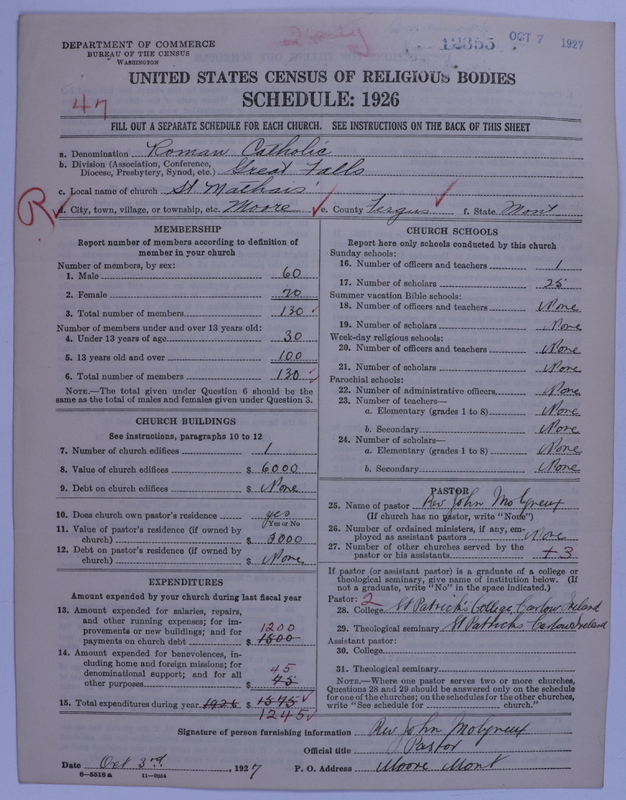 12355 OCT 7 1927
DEPARTMENT OF COMMERCE
BUREAU OF THE CENSUS
WASHINGTON
UNITED STATES CENSUS OF RELIGIOUS BODIES
SCHEDULE: 1926
47
FILL OUT A SEPARATE SCHEDULE FOR EACH CHURCH. SEE INSTRUCTIONS ON THE BACK OF THIS SHEET
a. Denomination Roman Catholic
b. Division (Association, Conference,
Diocese, Presbytery, Synod, etc.) Great Falls
c. Local name of church St Mathais'
R
d. City, town, village, or township, etc. Moore e. County Fergus f. State Mont
MEMBERSHIP
Report number of members according to definition of
member in your church
Number of members, by sex:
1. Male 60
2. Female 70
3. Total number of members 130
Number of members under and over 13 years old:
4. Under 13 years of age 30
5. 13 years old and over 100
6. Total number of members 130
NOTE.—The total given under Question 6 should be the
same as the total of males and females given under Question 3.
CHURCH BUILDINGS
See instructions, paragraphs 10 to 12
7. Number of church edifices 1
8. Value of church edifices $ 6000
9. Debt on church edifices $ None
10. Does church own pastor's residence yes
Yes or No
11. Value of pastor's residence (if owned by
church) $ 3000
12. Debt on pastor's residence (if owned by
church) $ None
EXPENDITURES
Amount expended by your church during last fiscal year
13. Amount expended for salaries, repairs,
and other running expenses; for im-
provements or new buildings; and for 1200
payments on church debt $ 1500
14. Amount expended for benevolences, in-
cluding home and foreign missions; for
denominational support; and for all 45
other purposes $ 45
15. Total expenditures during year 1926 $ 1575
1245
CHURCH SCHOOLS
Report here only schools conducted by this church
Sunday schools:
16. Number of officers and teachers 1
17. Number of scholars 25
Summer vacation Bible schools:
18. Number of officers and teachers None
19. Number of scholars None
Week-day religious schools:
20. Number of officers and teachers None
21. Number of scholars None
Parochial schools:
22. Number of administrative officers None
23. Number of teachers—
a. Elementary (grades 1 to 8) None
b. Secondary None
24. Number of scholars—
a. Elementary (grades 1 to 8) None
b. Secondary None
PASTOR
25. Name of pastor Rev John Molyneux
(If church has no pastor, write "None")
26. Number of ordained ministers, if any, em-
ployed as assistant pastors None
27. Number of other churches served by the
pastor or his assistants + 3
If pastor (or assistant pastor) is a graduate of a college or
theological seminary, give name of institution below. (If
not a graduate, write "No" in the space indicated.)
Pastor: 2
28. College St Patrick's College, Carlow, Ireland
29. Theological seminary St Patricks Carlow Ireland
Assistant pastor:
30. College
31. Theological seminary
NOTE.—Where one pastor serves two or more churches,
Questions 28 and 29 should be answered only on the schedule
for one of the churches; on the schedules for the other churches,
write "See schedule for church."
Signature of person furnishing information Rev John Molyneux
Official title Pastor
Date Oct 3rd, 1927 P. O. Address Moore Mont
6—5516a 11—9254